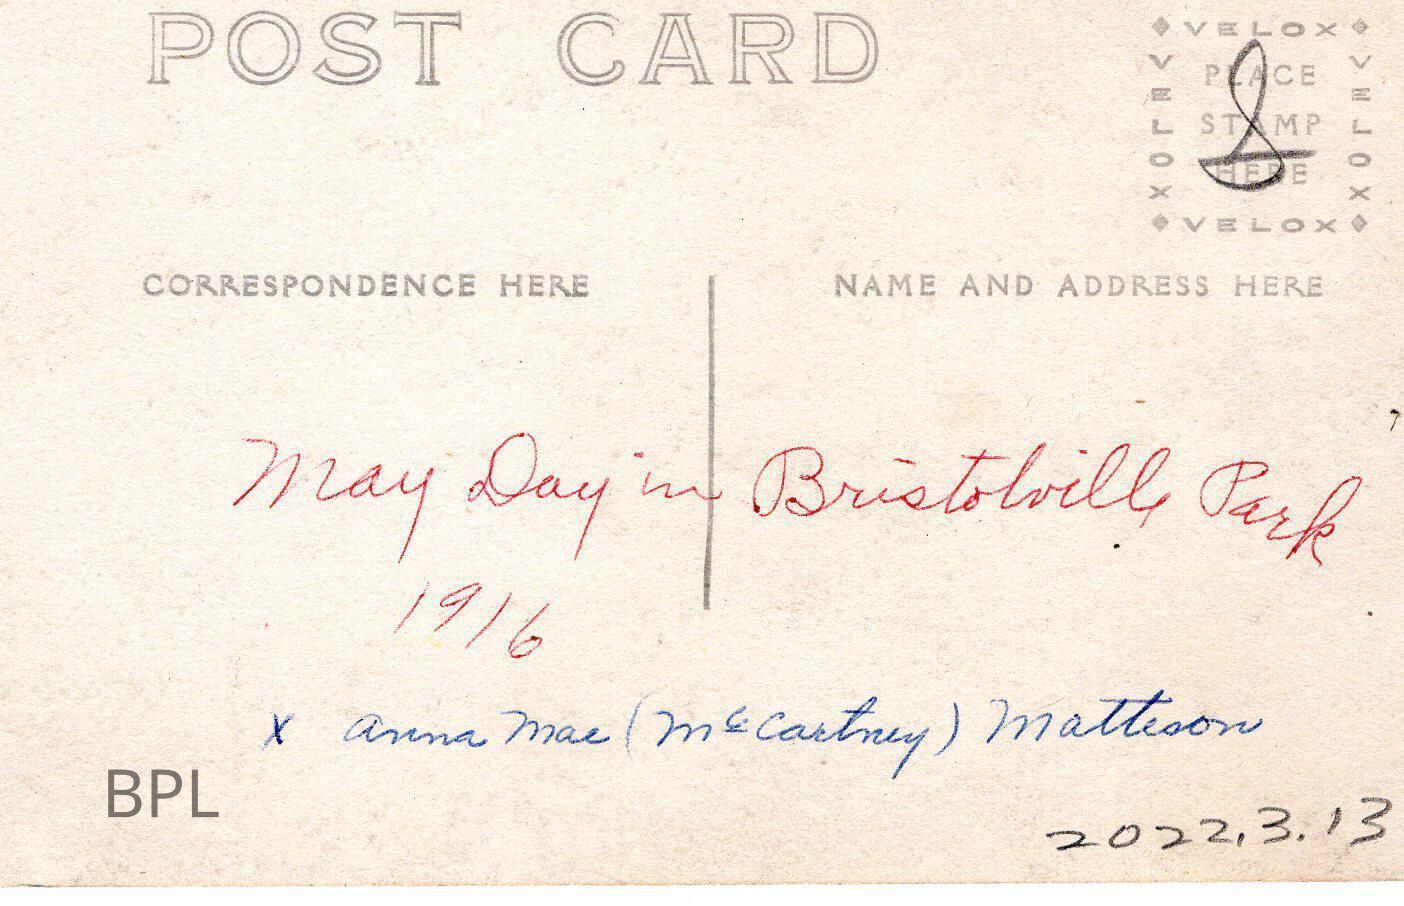 POST CARD
VELOX
VELOX
VELOX
PLACE
STAMP
HERE
VELOX
CORRESPONDENCE HERE
NAME AND ADDRESS HERE
May Day in Bristolville Park
1916
x Anna Mae (McCartney) Matteson
BPL
2022.3.13